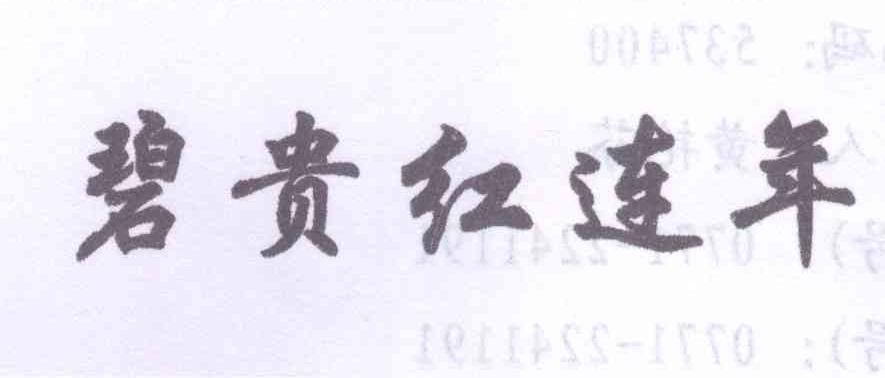 碧贵红连年